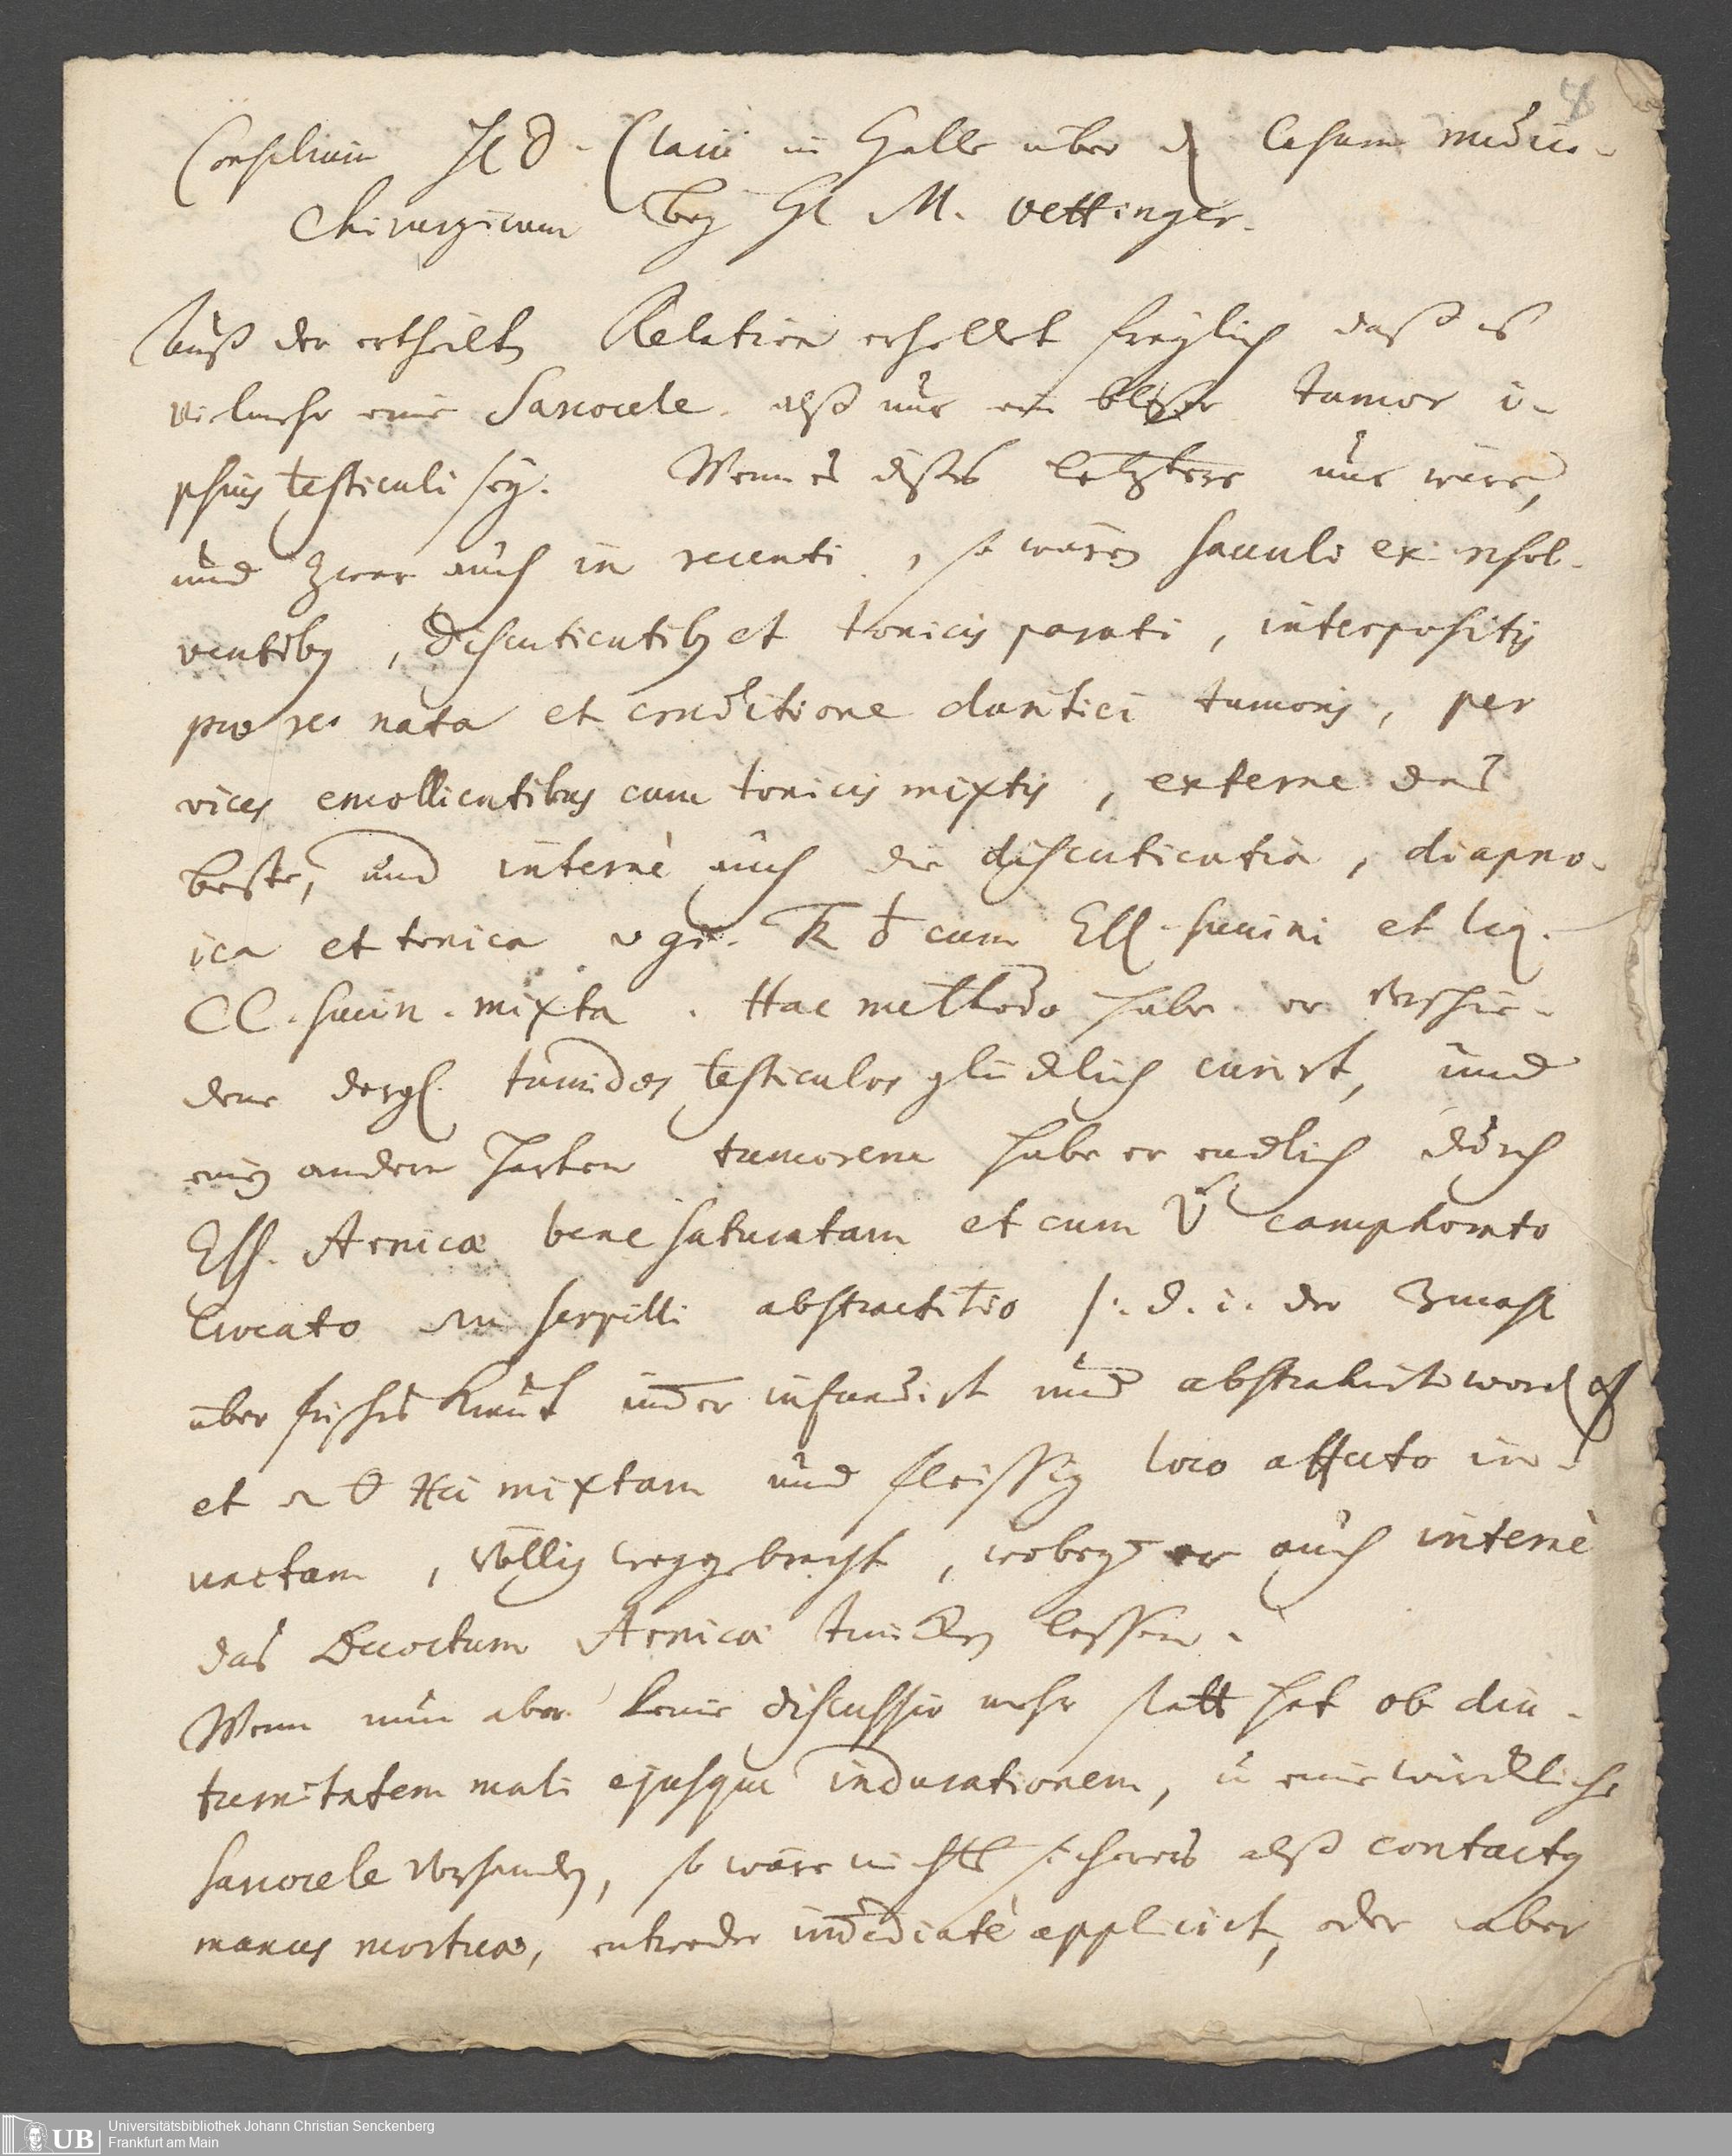 8
Consilium H D. Clauii in Halle über d Casum medico-
Chirurgicum bey H M. Oettinger.
Auß der ertheilten Relation erhellet freylich daß es
vielmehr eine Sarcocele alß nur ein bloser tumor i-
psius testiculi sey. Wenn es dißes letztere nur wäre,
und zwar auch in recenti, so wären sacculi ex resol-
ventibus, discutientibus et tonicis parati, interpositis
pro re nata et conditione duritiei tumoris, per
vices emollientibus cum tonicis mixtis, externe das
beste, und internè auch die discutientia, diapno-
ica et tonica vgr. cum Ess. succini et liq.
CC. succin. mixta. Hac methodo habe er verschie-
dene dergl. tumidos testiculos glücklich curirt, und
einen andern harten tumorem habe er endlich durch
Ess. Arnicæ bene saturatam et cum camphorato
crocato serpilli abstractitio /: d. i. der 3mahl
über frisches Kraut infundirt und abstrahirt worden
et mixtam und fleissig loco affecto in-
unctam, völlig weggebracht, wobey er auch internè
das Decoctum Arnicæ trincken lassen.
Wenn nun aber keine discussio mehr statt hat ob diu-
turnitatem mali ejusque indurationem, u eine würckliche
sarcocele vorhanden, so wäre nichts sicherers alß contactus
manus mortuæ, entweder immediatè applicirt, oder aber
Universitätsbibliothek Johann Christian Senckenberg
Frankfurt am Main
UB